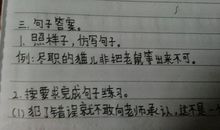 三.句子答案。
1. 照样子,仿写句子。
例:尽职的猫儿非把老鼠等出来不可。
2. 按要求完成句子练习。
(1) 犯了错误家长不敢向老师承认,这不是一